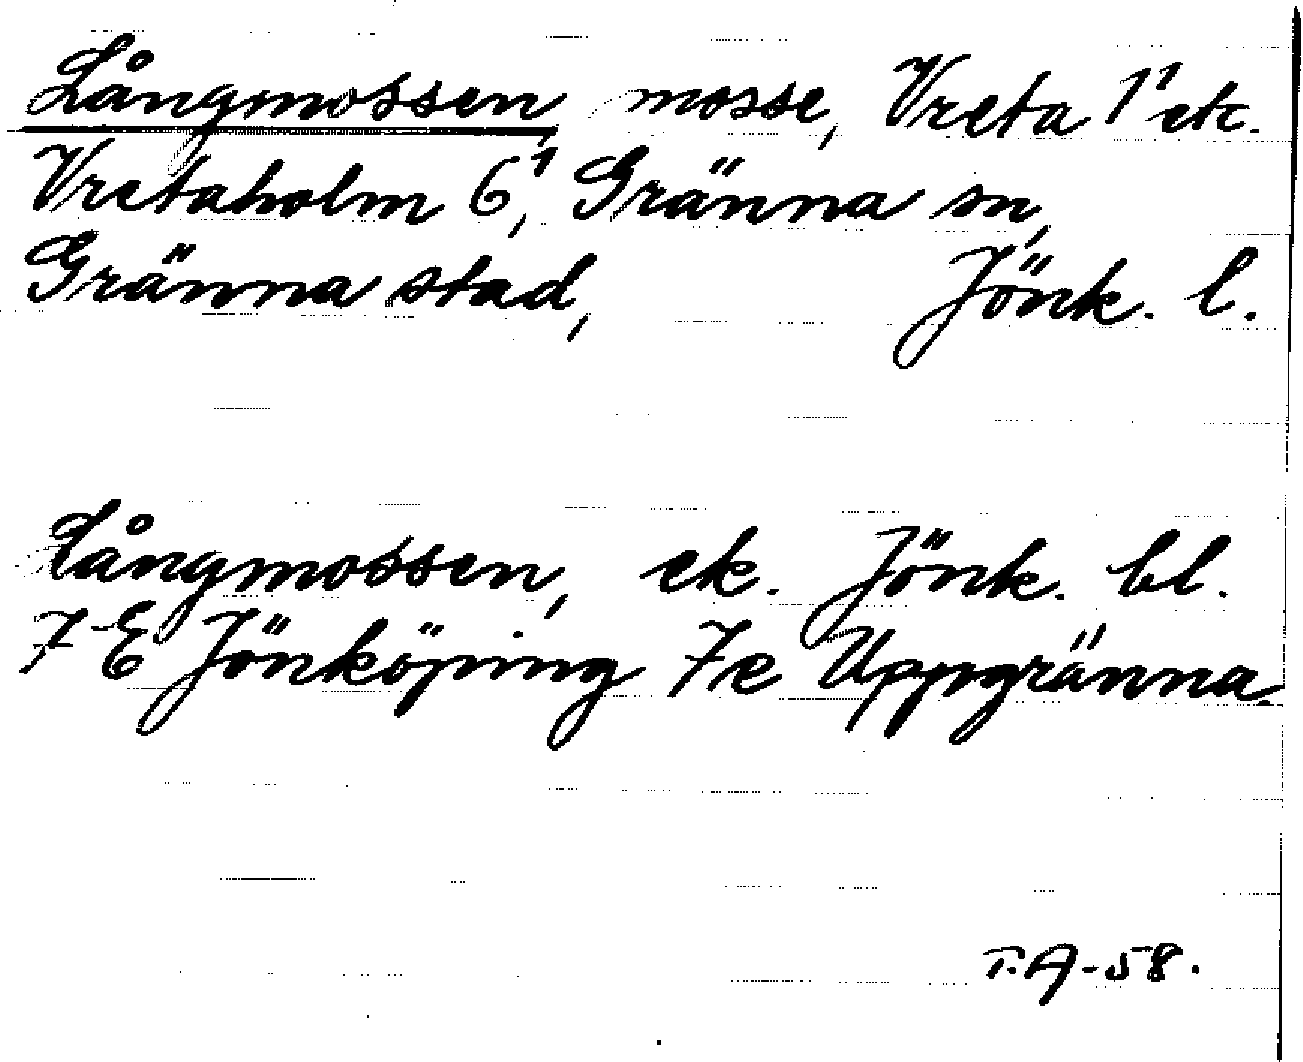 Långmossen, mosse, Vreta 1¹ etc.
Vretaholm 6¹, Gränna sn,
Gränna stad, Jönk. l.
Långmossen, ek. Jönk. bl.
7 E Jönköping 7e Uppgränna.
T.A-58.